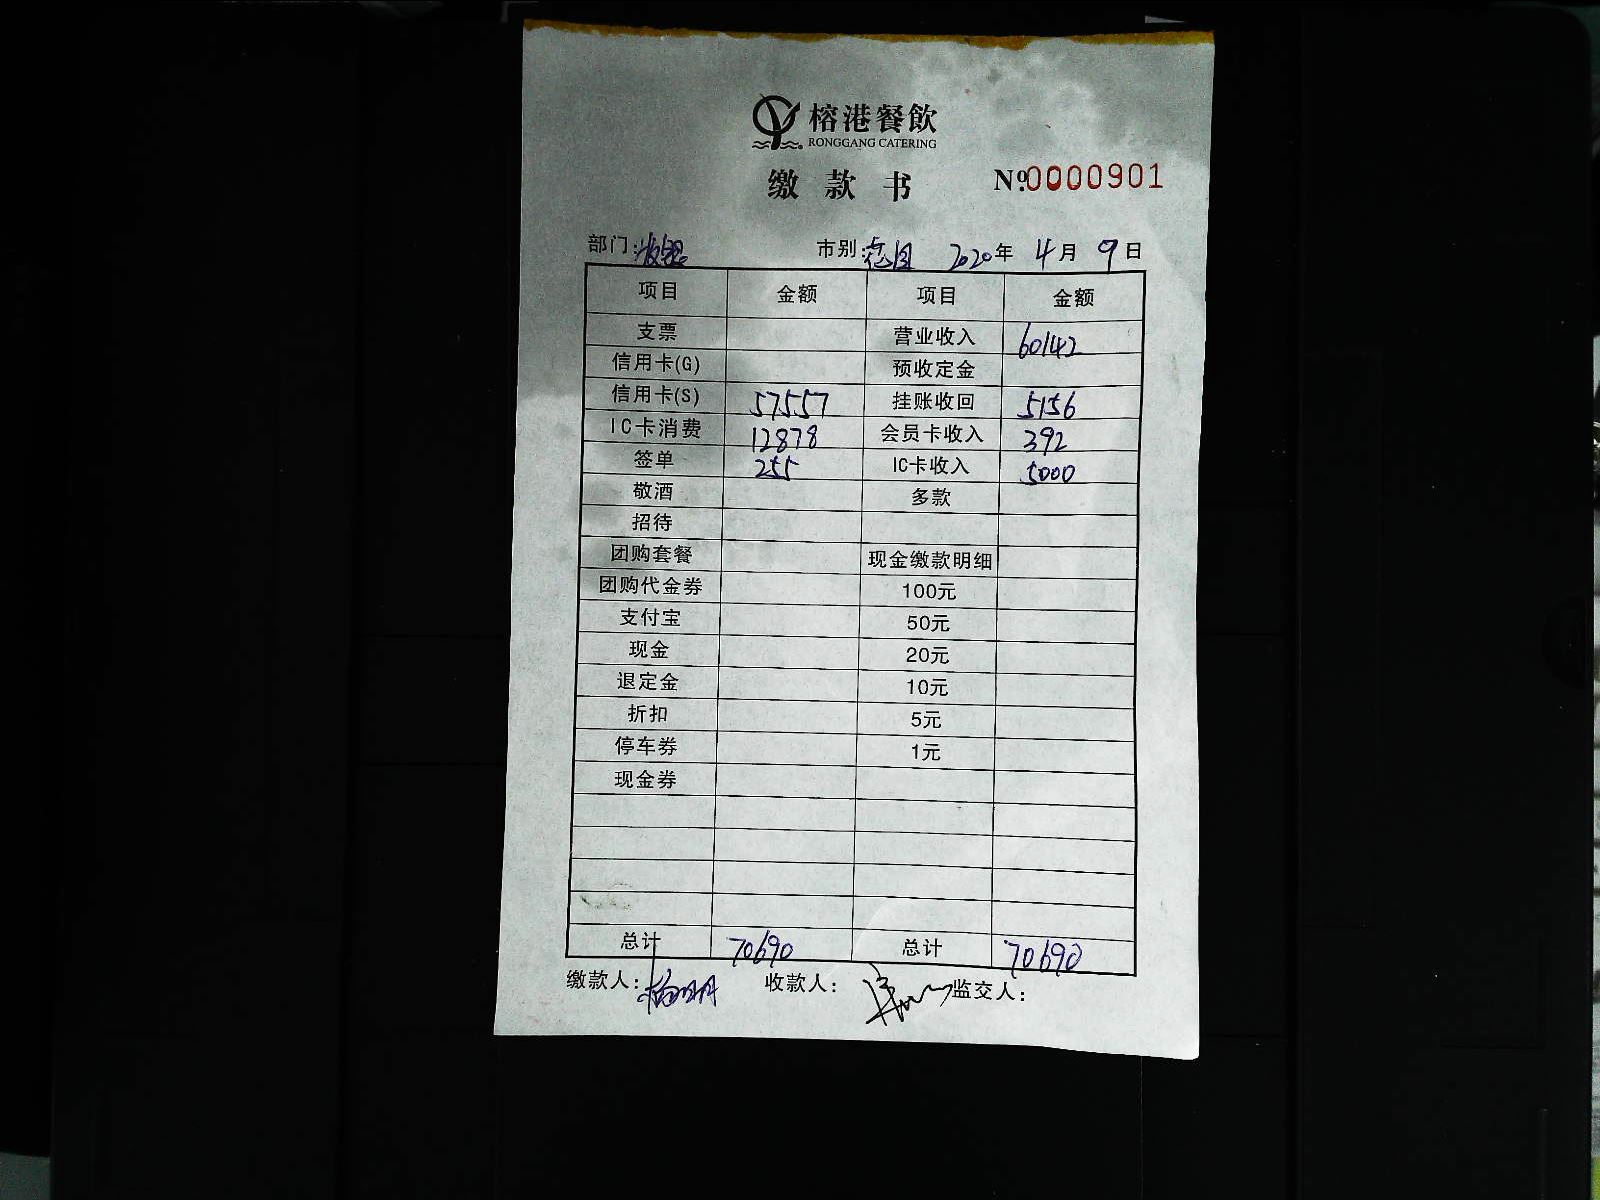 榕港餐飲
RONGGANG CATERING
缴款书 №0000901
部门:收银 市别: 2020年4月9日
项目 金额 项目 金额
支票 营业收入 60142
信用卡(G) 预收定金
信用卡(S) 57557 挂账收回 5156
IC卡消费 12878 会员卡收入 392
签单 255 IC卡收入 5000
敬酒 多款
招待
团购套餐 现金缴款明细
团购代金券 100元
支付宝 50元
现金 20元
退定金 10元
折扣 5元
停车券 1元
现金券
总计 70690 总计 70690
缴款人: 收款人: 监交人: